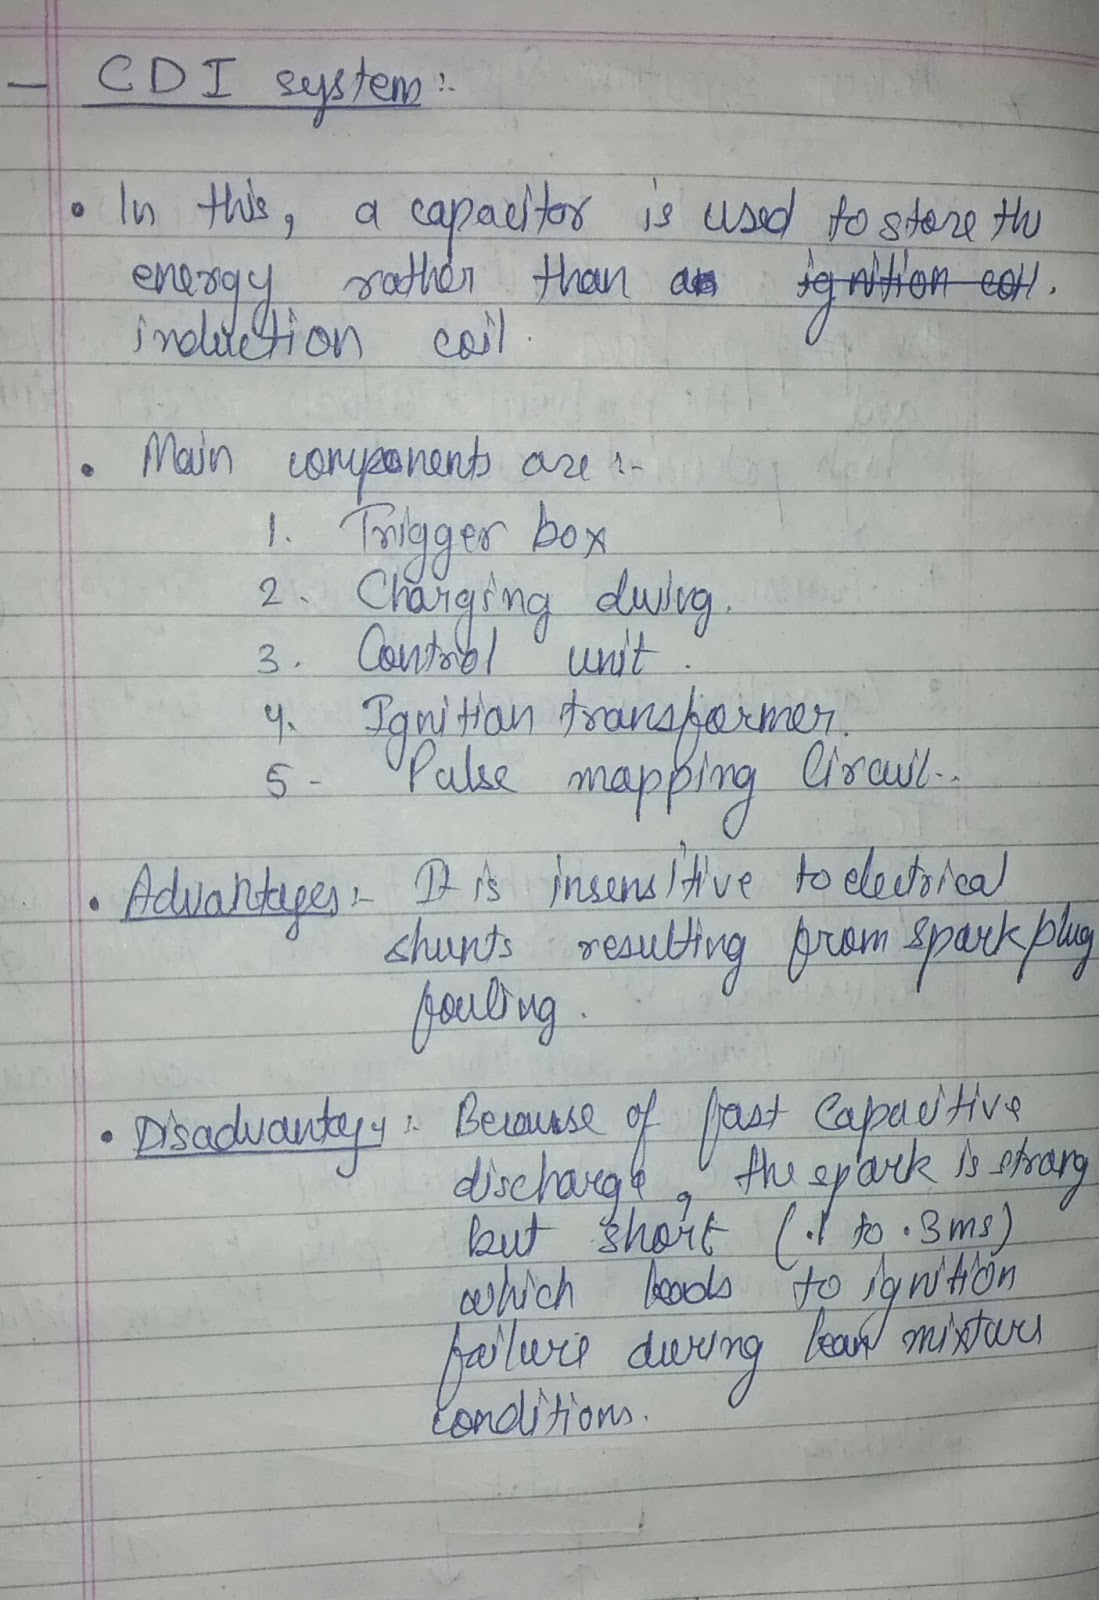 - CDI system :-
• In this, a capacitor is used to store the
energy rather than an ignition coil.
induction coil.
• Main components are :-
1. Trigger box
2. Charging
3. Control unit.
4. Ignition transformer.
5- Pulse mapping Circuit..
• Advantages :- It is insensitive to electrical
shunts resulting from spark plug
fouling.
• Disadvantage :- Because of fast Capacitive
discharge, the spark is strong
but short (.1 to .3 ms)
which leads to ignition
failure during lean mixture
conditions.